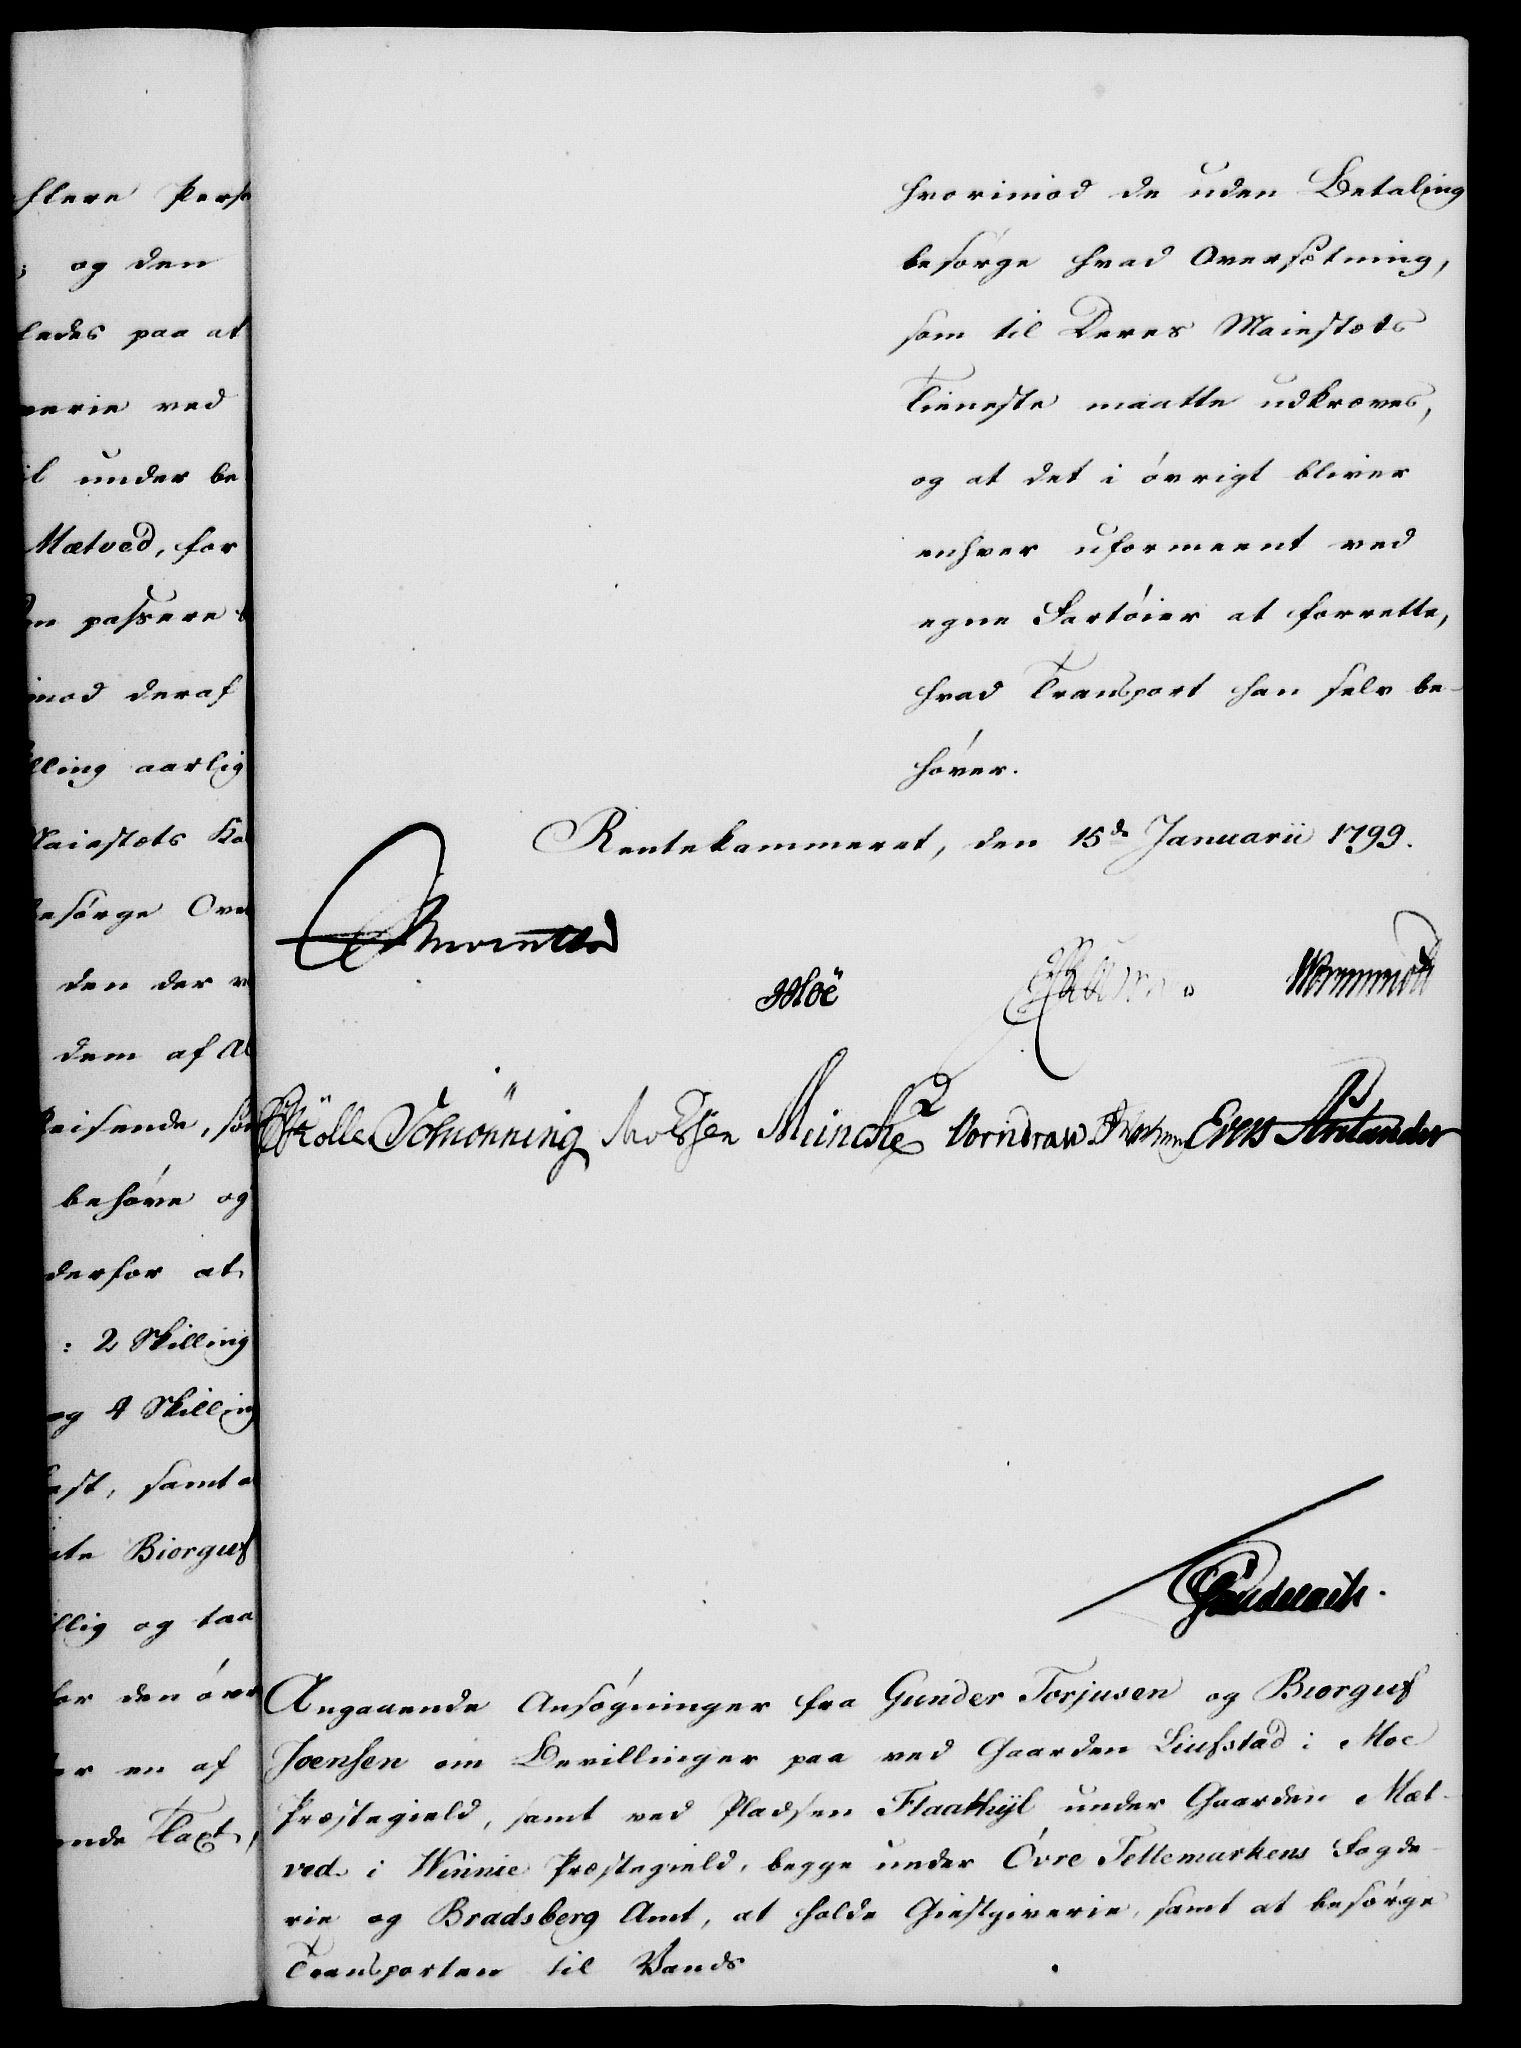 flere Pers
og den
ledes paa at
verie ved
il under be
Mætved, for
en passere
imod deraf
lling aarlig
Maiestæts Ka
besørge Ove
den der
dem af
Reisende, som
behøve og
derfor at
: 2 Skilling
og 4 Skilling
est, samt
Biorguf
llig og taa
for den øvr
er en af
ende Taxt,
hvorimod de uden Betaling
besørge hvad Oversætning,
som til Deres Maiestæts
Tieneste maatte udkræves,
og at det i øvrigt bliver
enhver uformeent ved
egne Fartøier at forrette,
hvad Transport han selv be-
høver.
Rentekammeret, den 15de Januarii 1799.
Moe Wormskiold
Schiönning Meincke Vorndran Evers
Angaaende Ansøgninger fra Gunder Torjusen og Biorguf
Joensen om Bevillinger paa ved Gaarden Liufstad i Moe
Præstegield, samt ved Pladsen Flaathyl under Gaarden Mæt-
ved i Winnie Præstegield, begge under Övre Tellemarkens Fogde-
rie og Bradsberg Amt, at holde Giestgiverie, samt at besørge
Transporten til Vands